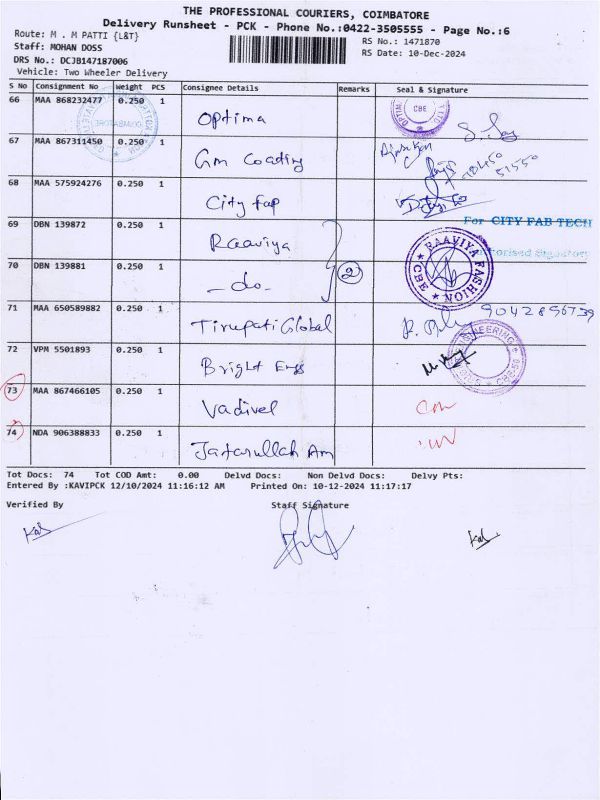 THE PROFESSIONAL COURIERS, COIMBATORE
Delivery Runsheet - PCK - Phone No.:0422-3505555 - Page No.:6
Route: M . M PATTI {L&T}
RS No.: 1471870
Staff: MOHAN DOSS
RS Date: 10-Dec-2024
DRS No.: DCJB147187006
Vehicle: Two Wheeler Delivery
S No Consignment No Weight PCS Consignee Details Remarks Seal & Signature
66 MAA 868232477 0.250 1 Optima CBE
67 MAA 867311450 0.250 1 Gm Coating
68 MAA 575924276 0.250 1 City Fap
For CITY FAB TECH
69 DBN 139872 0.250 1 Raaviya
70 DBN 139881 0.250 1 -do- 2 RAAVIYA FASHION CBE
71 MAA 650589882 0.250 1 Tirupati Global 9042856739
72 VPM 5501893 0.250 1 Bright Engg
73 MAA 867466105 0.250 1 Vadivel
74 NDA 906388833 0.250 1 Jafarullah Am
Tot Docs: 74 Tot COD Amt: 0.00 Delvd Docs: Non Delvd Docs: Delvy Pts:
Entered By :KAVIPCK 12/10/2024 11:16:12 AM Printed On: 10-12-2024 11:17:17
Verified By Staff Signature